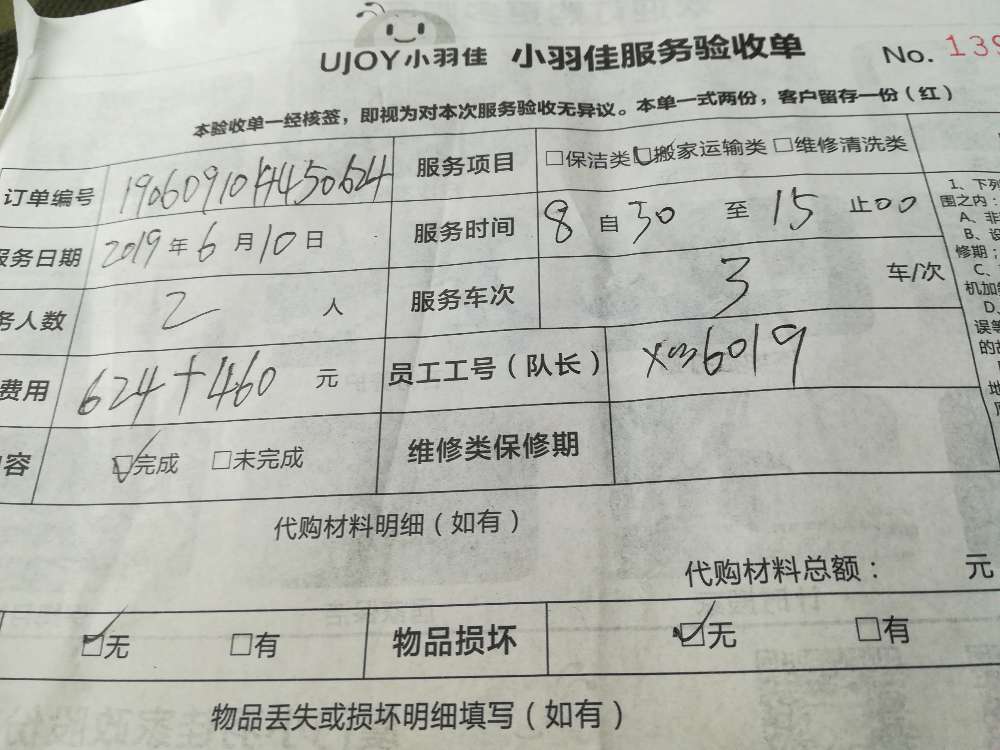 UJOY小羽佳 小羽佳服务验收单 No. 139
本验收单一经核签，即视为对本次服务验收无异议。本单一式两份，客户留存一份（红）
订单编号 服务项目 □保洁类 ☑搬家运输类 □维修清洗类
服务日期 2019年6月10日 服务时间 8自30至15止00
务人数 2人 服务车次 3 车/次
费用 624+460 元 员工工号（队长） xm6019
内容 ☑完成 □未完成 维修类保修期
代购材料明细（如有）
代购材料总额： 元
☑无 □有 物品损坏 ☑无 □有
物品丢失或损坏明细填写（如有）
1、下列
围之内：
A、非
B、设
修期；
C、
机加
D、
误等
的故
地